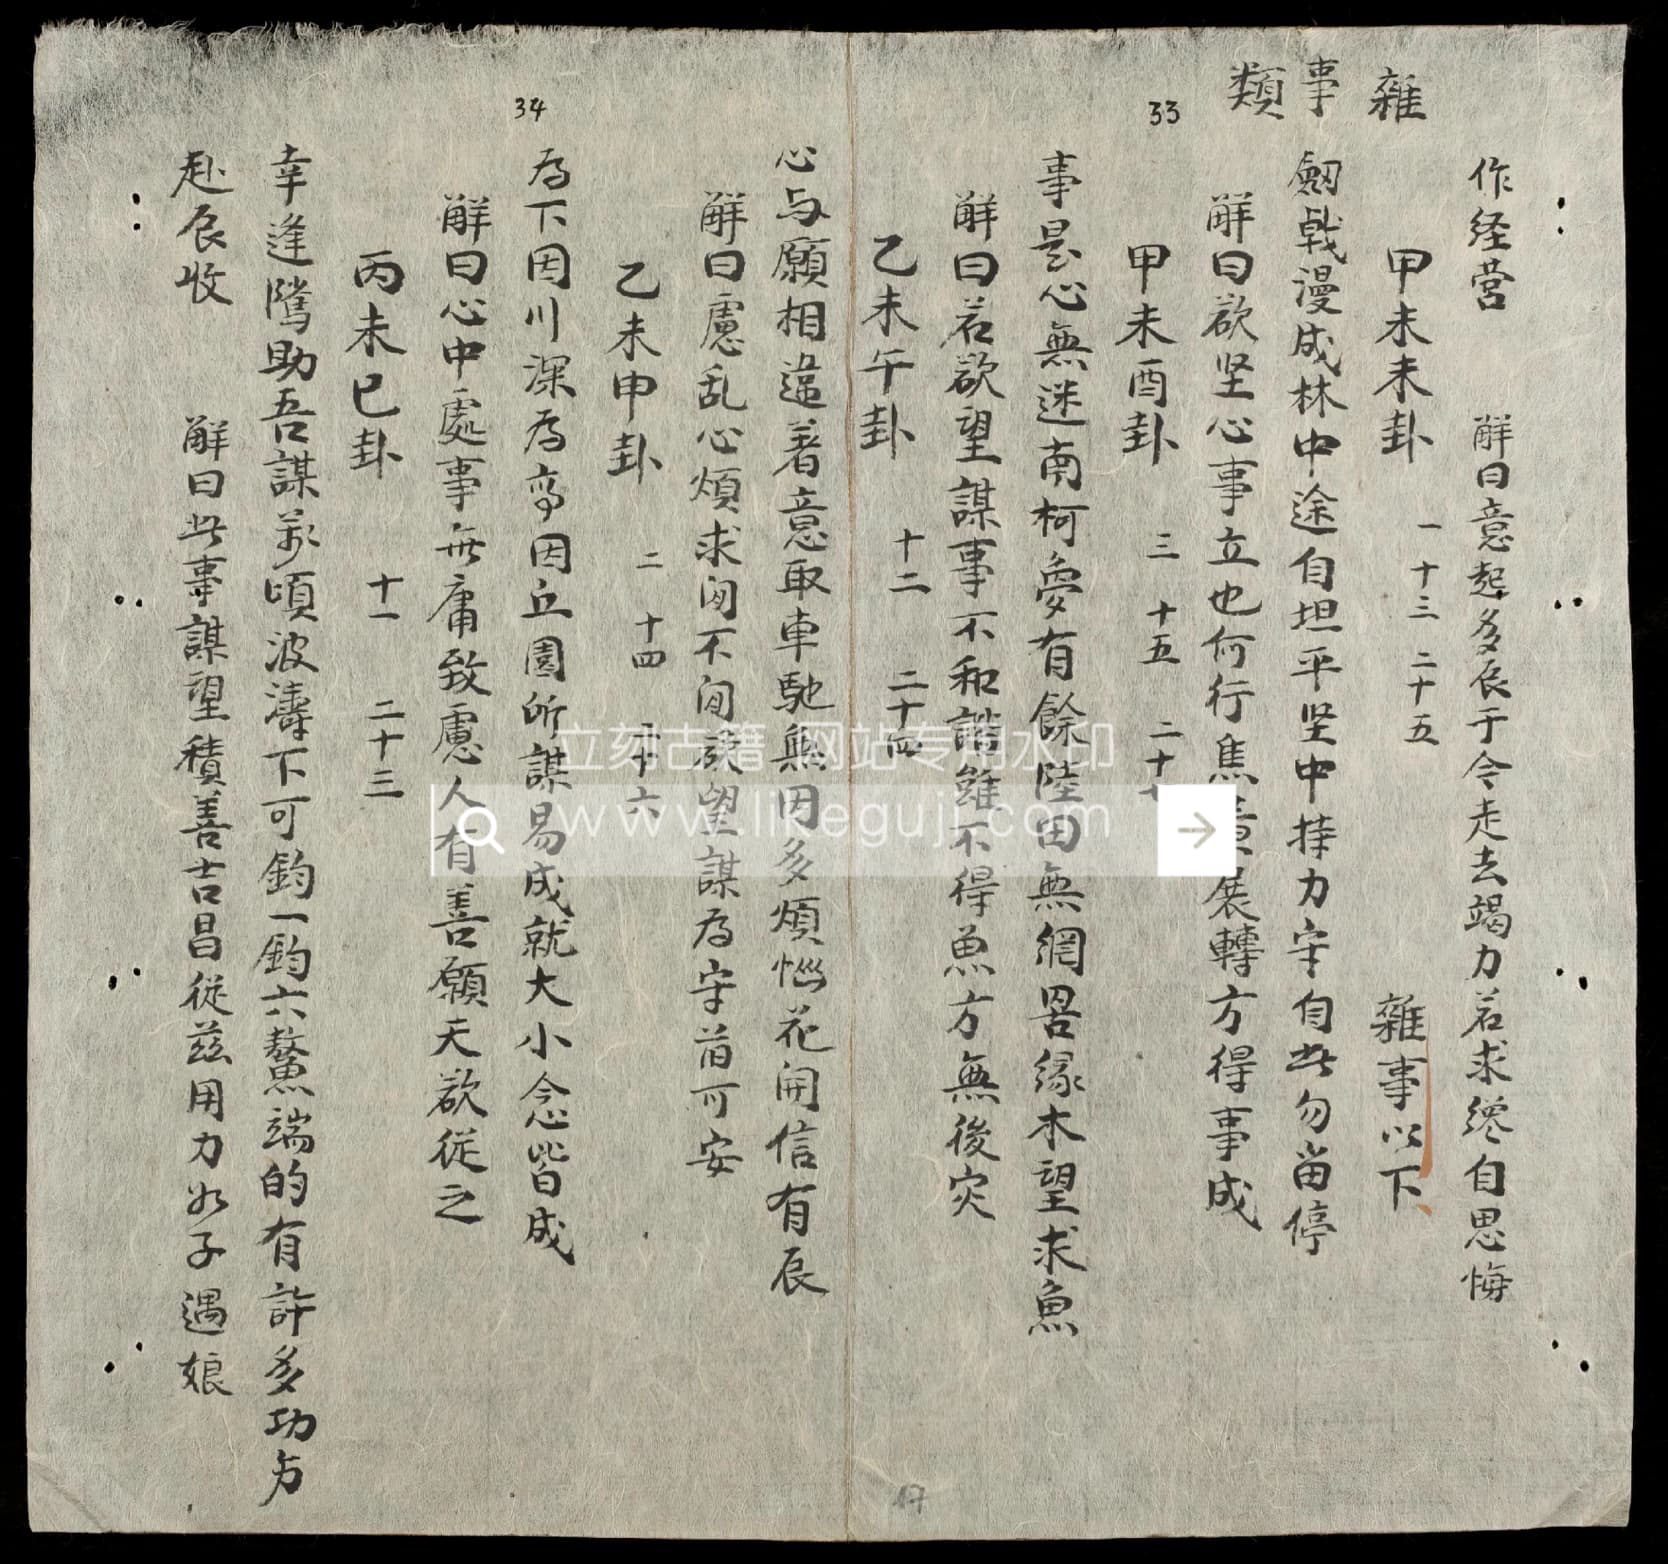 雜
事
類
作经营　解曰意起多辰于今走去竭力若求终自思悔
甲未未卦　一　十三　二十五　雜事以下
劔戟漫成林中途自坦平坚中持力守自此勿畄停
解曰欲坚心事立也何行焦意展轉方得事成
33
甲未酉卦　三　十五　二十
事是心無迷南柯夢有餘陸田無網罟缘木望求魚
解曰若欲望謀事不和諧雖不得魚方無後灾
乙未午卦　十二　二十四
心与願相違著意取車馳無因多煩惱花開信有辰
解曰慮乱心煩求闵不闵欲望謀為守首可安
乙未申卦　二　十四　二十六
34
為下因川深為高因丘園所謀易成就大小念皆成
解曰心中處事無庸致慮人有善願天欲従之
丙未巳卦　十一　二十三
幸逢隲助吾謀萬頃波濤下可鈞一鈞六鰲端的有許多功夯
赴辰收　解曰此事謀望積善吉昌従兹用力如子遇娘
17
立刻古籍 网站专用水印
www.likeguji.com